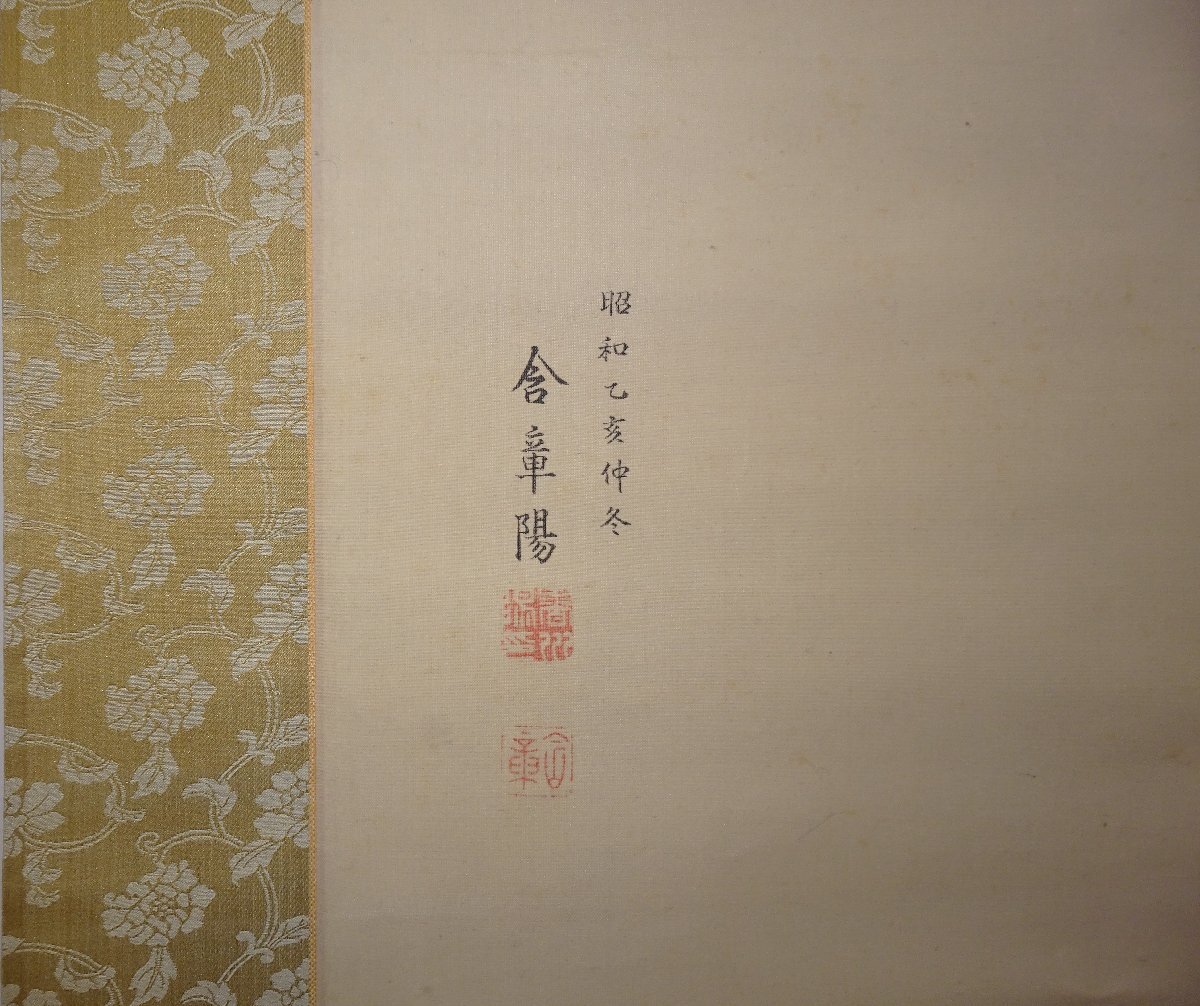 昭和乙亥仲冬
含章陽
含章